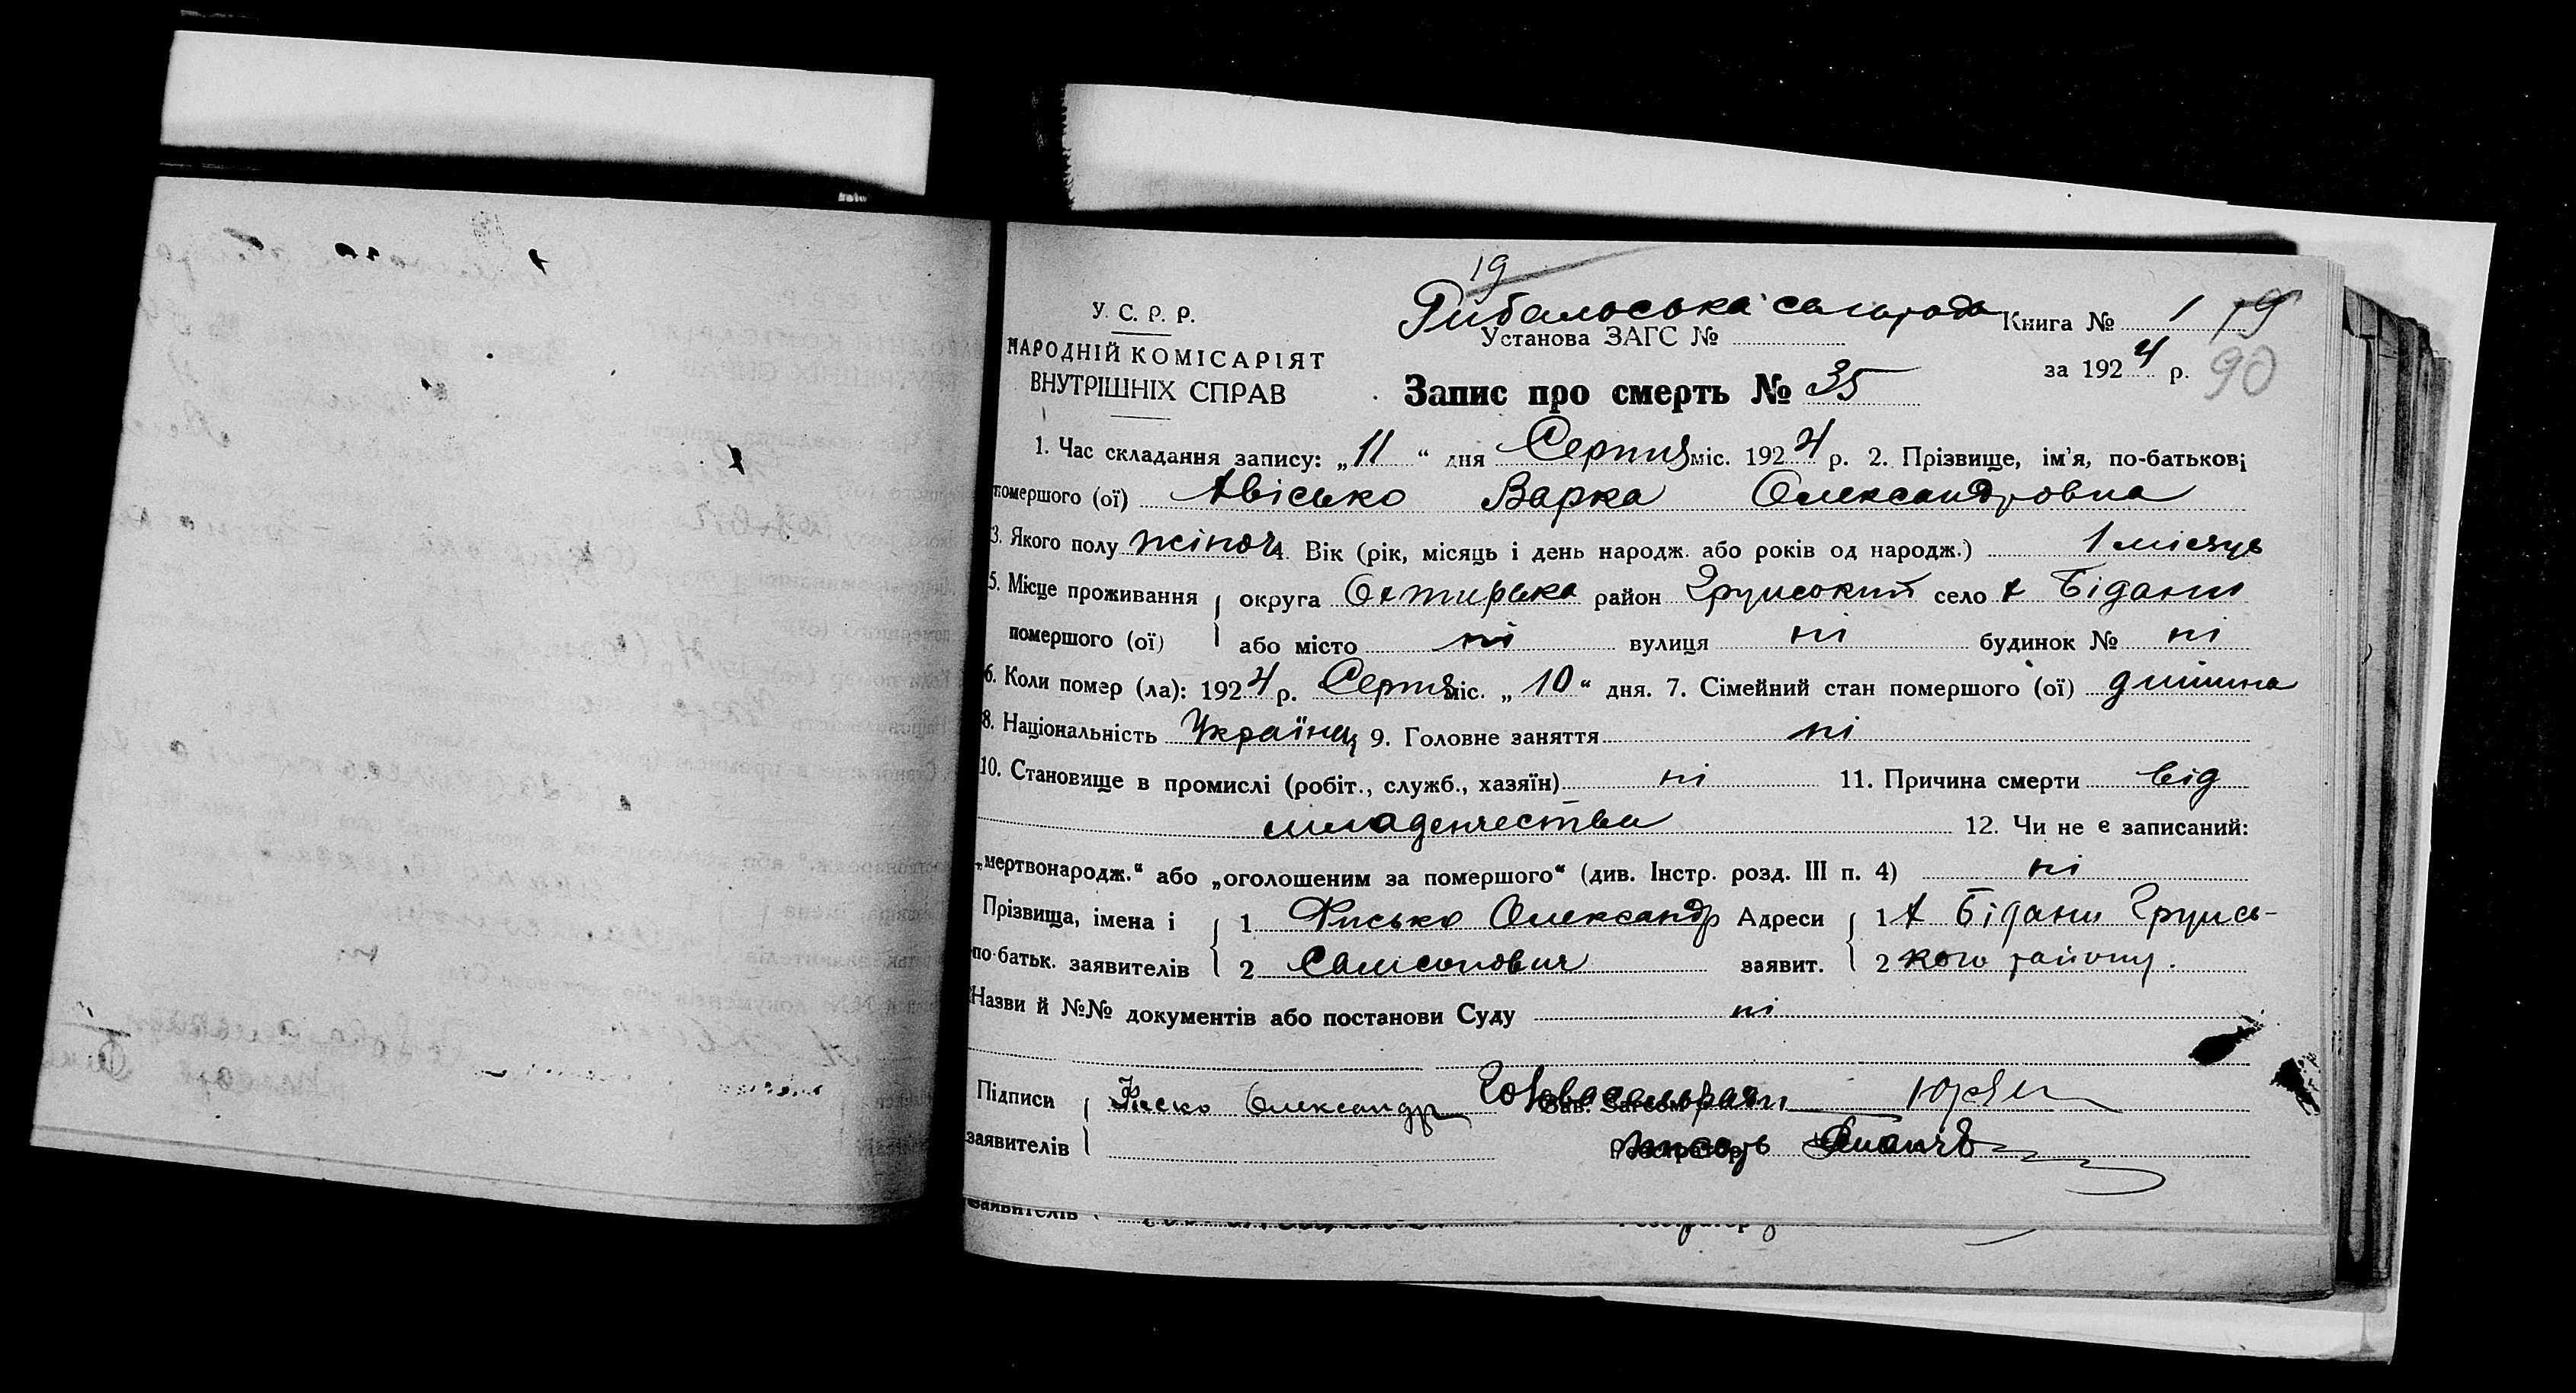 19
У. С. Р. Р.
НАРОДНІЙ КОМІСАРІЯТ
ВНУТРІШНІХ СПРАВ
Рибальська
Установа ЗАГС №
Книга № 1 79
за 1924 р. 90
Запис про смерть № 35
1. Час складання запису: „11“ дня Серпня міс. 1924 р. 2. Прізвище, ім'я, по-батькові
помершого (ої) Варка Олександровна
3. Якого полу жіноч 4. Вік (рік, місяць і день народж. або років од народж.) 1 місяць
5. Місце проживання помершого (ої) округа Охтирська район Грунський село х Бідани
або місто ні вулиця ні будинок № ні
6. Коли помер (ла): 1924 р. Серпня міс. „10“ дня. 7. Сімейний стан помершого (ої) дитина
8. Національність Українц 9. Головне заняття ні
10. Становище в промислі (робіт., служб., хазяїн) ні 11. Причина смерти від
младенчества 12. Чи не є записаний:
„мертвонародж.“ або „оголошеним за помершого“ (див. Інстр. розд. III п. 4) ні
Прізвища, імена і 1 Олександр Адреси 1 х Бідани Грунсь-
по-батьк. заявителів 2 Самсонович заявит. 2 кого району.
Назви й №№ документів або постанови Суду ні
Підписи Олександр Голова сельради Зав. Загсом
заявителів Реєстратор писарь
заявителів Реєстратор